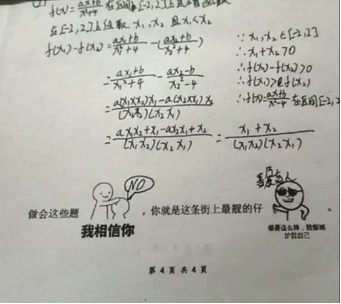 f(x)=ax+b/x²+4 在区间[-2,2]上
在[-2,2]上任取 x₁,x₂ 且x₁<x₂
f(x₁)-f(x₂)=ax₁+b/x₁²+4 -(ax₂+b/x₂²+4)
=ax₁+b/x₁²+4 - ax₂-b/x₂²-4
=a(x₁x₂)x₁-a(x₂x₁)x₂/(x₁x₂)(x₂x₁)
=ax₁x₂+x₁-ax₂x₁+x₂/(x₁x₂)(x₂x₁) = x₁+x₂/(x₁x₂)(x₂x₁)
∵x₁,x₂∈[-2,2]
∴x₁+x₂>0
∴f(x₁)-f(x₂)>0
∴f(x₁)>f(x₂)
∴f(x)=ax+b/x²-4 在区间[-2,2
NO
做会这些题
,你就是这条街上最靓的仔
我相信你
护我自己
第 4 页 共 4 页